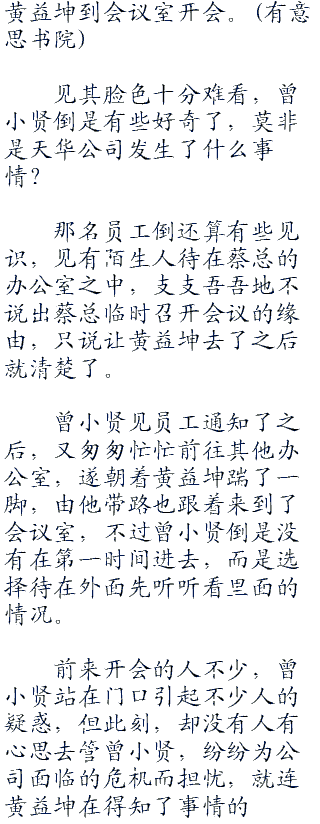 黄益坤到会议室开会。(有意
思书院)
见其脸色十分难看，曾
小贤倒是有些好奇了，莫非
是天华公司发生了什么事
情？
那名员工倒还算有些见
识，见有陌生人待在蔡总的
办公室之中，支支吾吾地不
说出蔡总临时召开会议的缘
由，只说让黄益坤去了之后
就清楚了。
曾小贤见员工通知了之
后，又匆匆忙忙前往其他办
公室，遂朝着黄益坤踹了一
脚，由他带路也跟着来到了
会议室，不过曾小贤倒是没
有在第一时间进去，而是选
择待在外面先听听看里面的
情况。
前来开会的人不少，曾
小贤站在门口引起不少人的
疑惑，但此刻，却没有人有
心思去管曾小贤，纷纷为公
司面临的危机而担忧，就连
黄益坤在得知了事情的